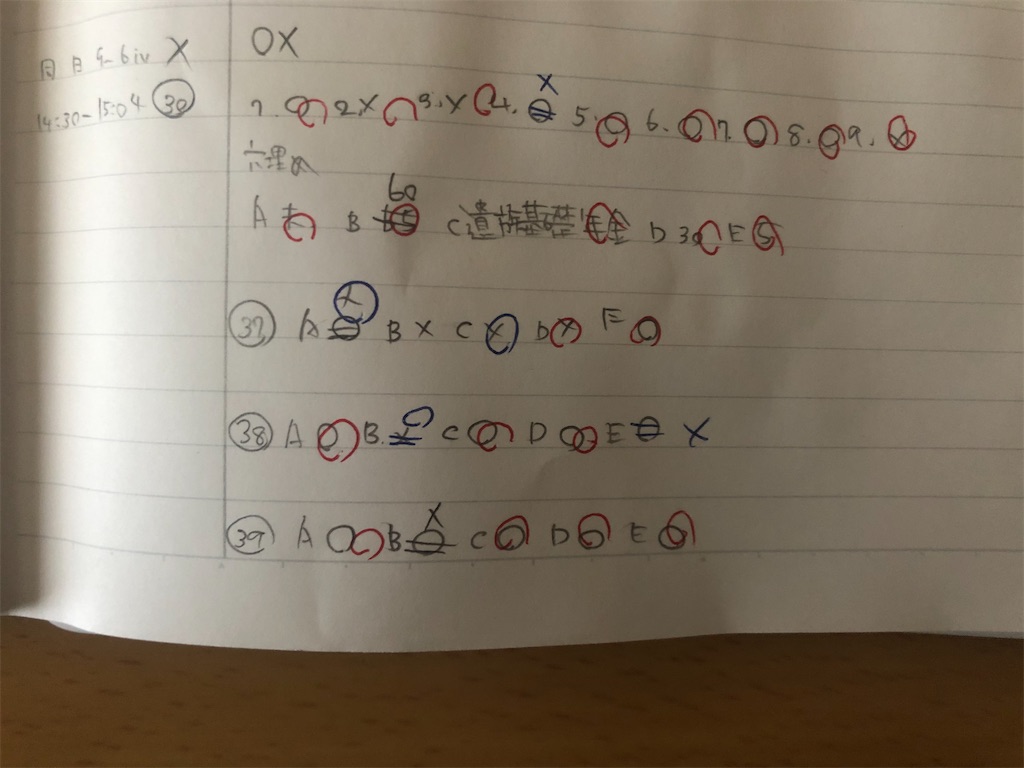 同日 5-6 iv X
14:30-15:04 ㊴
OX
1. ○ 2 X 3. X 4. ○ X 5. ○ 6. ○ 7. ○ 8. ○ 9. X
A B 60 C 遺族基礎年金 D 30 E
㊲ A ○ X B X C X D X E ○
㊳ A ○ B. X ○ C ○ D ○ E ○ X
㊴ A ○ B ○ X C ○ D ○ E ○